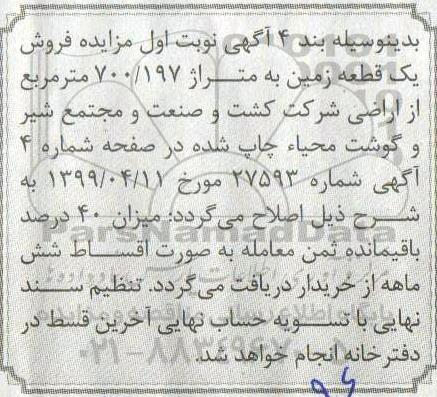 بدینوسیله بند ۴ آگهی نوبت اول مزایده فروش
یک قطعه زمین به متراژ ۷۰۰/۱۹۷ مترمربع
از اراضی شرکت کشت و صنعت و مجتمع شیر
و گوشت محیاء چاپ شده در صفحه شماره ۴
آگهی شماره ۲۷۵۹۳ مورخ ۱۳۹۹/۰۴/۱۱ به
شرح ذیل اصلاح می‌گردد: میزان ۴۰ درصد
باقیمانده ثمن معامله به صورت اقساط شش
ماهه از خریدار دریافت می‌گردد. تنظیم سند
نهایی با تسویه حساب نهایی آخرین قسط در
دفترخانه انجام خواهد شد.
ParsNamadData